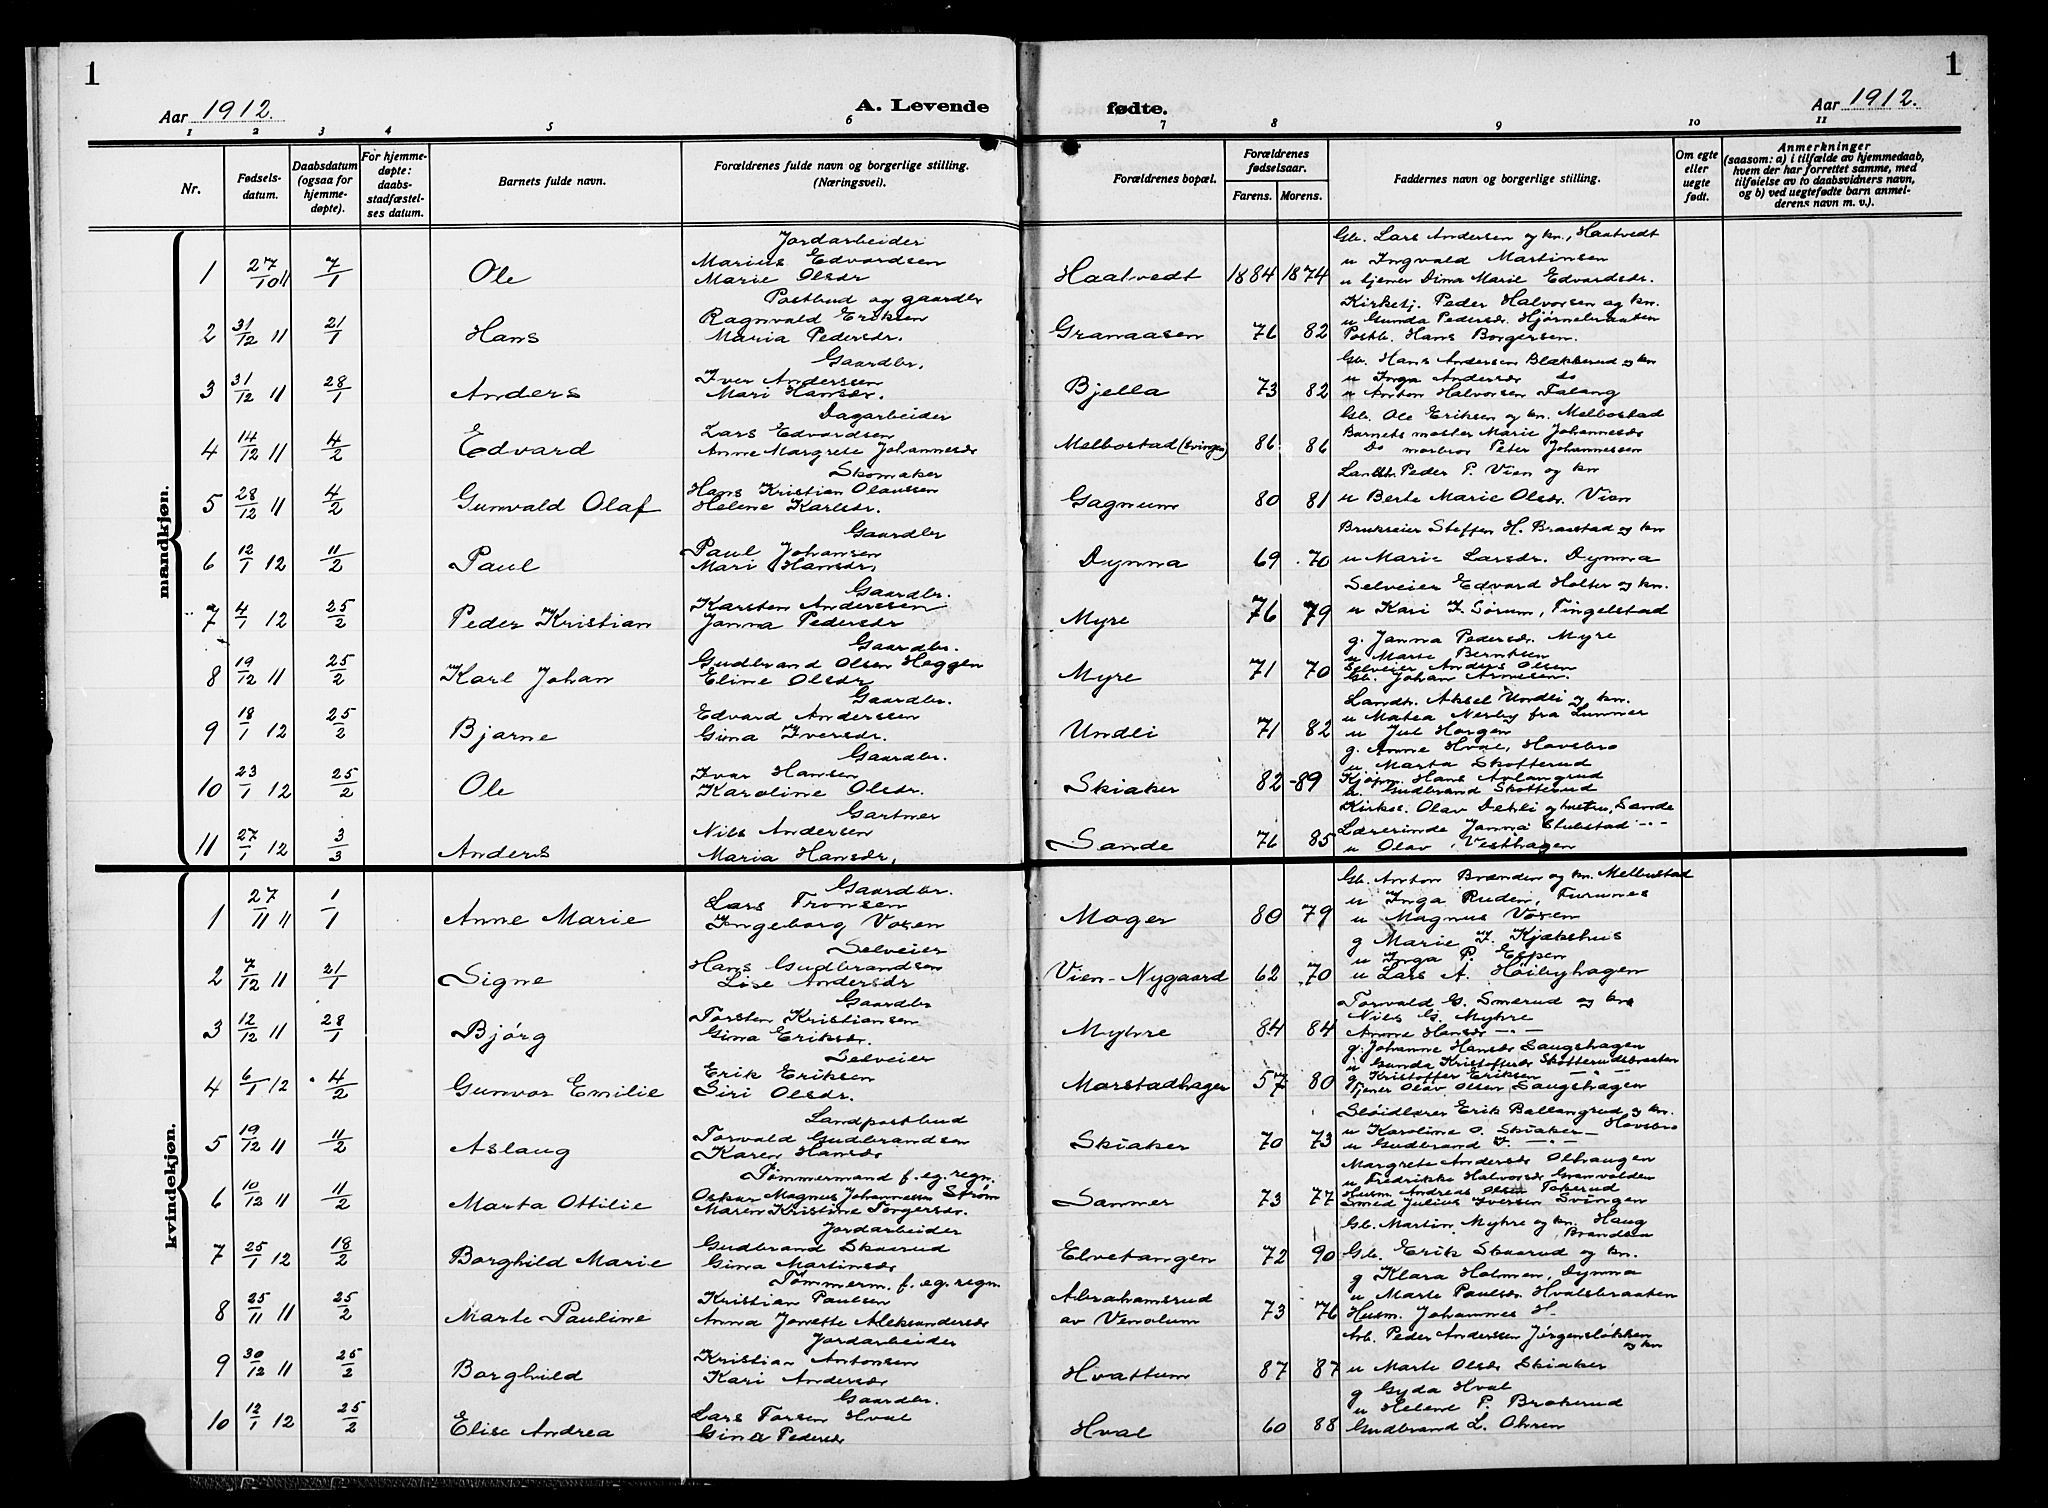 1
1
Aar 1912.
A. Levende
fødte.
Aar 1912.
1 2 3 4 5 6 7 8 9 10 11
Nr.
Fødsels-
datum.
Daabsdatum
(ogsaa for
hjemme-
døpte).
For hjemme-
døpte:
daabs-
stadfæstel-
ses datum.
Barnets fulde navn.
Forældrenes fulde navn og borgerlige stilling.
(Næringsvei).
Forældrenes bopæl.
Forældrenes
fødselsaar.
Farens. Morens.
Faddernes navn og borgerlige stilling.
Om egte
eller
uegte
født.
Anmerkninger
(saasom: a) i tilfælde av hjemmedaab,
hvem der har forrettet samme, med
tilføielse av to daabsvidners navn,
og b) ved uegtefødte barn anmel-
derens navn m. v.).
mandkjøn.
Jordarbeider
Gb. Lars Andersen og kn., Haatvedt
1 27/10 11 7/1 Ole Marius Edvardsen Haatvedt 1884 1874 u Ingvald Martinsen
Marie Olsdr u tjener Dina Marie Edvardsdr.
Postbud og gaardbr Kirketj. Peder Halvorsen og kn.
2 31/12 11 21/1 Hans Ragnvald Eriksen Granaasen 76 82 u Gunda Pedersdr. Hjørnebraaten
Maria Pedersdr. Postb. Hans Borgersen.
Gaardbr. Gb. Hans Andersen Blækkerud og kn
3 31/12 11 28/1 Anders Iver Anderssen Bjella 73 82 u Inga Andersdr do
Mari Hansdr. u Anton Halvorsen Falang
Dagarbeider Gb. Ole Eriksen og kn. Melbostad
4 14/12 11 4/2 Edvard Lars Edvardsen Melbostad (svingen) 86 86 Barnets moster Marie Johannesdr
Anne Margrete Johannesdr Do morbror Peter Johannessen
Skomaker Landbr. Peder P. Vien og kn
5 28/12 11 4/2 Gunvald Olaf Hans Kristian Olaussen Gagnum 80 81 u Berte Marie Olsdr. Vien
Helene Karlsdr.
Gaardbr Brukseier Steffen H. Braastad og kn
6 12/1 12 11/2 Paul Paul Johansen Dynna 69 70 u Marie Larsdr. Dynna
Mari Hansdr.
Gaardbr. Selveier Edvard Holter og kn.
7 4/1 12 25/2 Peder Kristian Karsten Anderssen Myre 76 79 u Kari I. Sørum, Tingelstad
Janna Pedersdr g. Janna Pedersdr. Myre
Gaardbr. u Marte Berntsen
8 19/12 11 25/2 Karl Johan Gudbrand Olsen Heggen Myre 71 70 Selveier Anders Olsen
Eline Olsdr Gb. Johan Arnesen.
Gaardbr. Landh. Aksel Undli og kn.
9 18/1 12 25/2 Bjarne Edvard Anderssen Undli 71 82 u Matea Nerby fra Lunner
Gina Iversdr. u Jul Horgen
Gaardbr. g. Anne Hval, Hovsbro
10 23/1 12 25/2 Ole Ivar Hansen Skiaker 82 -89 u Marta Skotterud
Karoline Olsdr. Kjøpm. Hans Avlangrud
u. Gudbrand Skotterud
Gartner Kirkes. Olav Dehli og hustru, Sande
11 27/1 12 3/3 Anders Nils Andersen Sande 76 85 Lærerinde Janna Stubstad -"-
Maria Hansdr, u Olav Vesthagen
kvindekjøn.
Gaardbr. Gb. Anton Brænden og kn. Melbustad
1 27/11 11 1/1 Anne Marie Lars Tronsen Moger 80 79 u Inga Ruden, Furunes
Ingeborg Voxen u Magnus Voxen
Selveier g Marie I. Kjækshus
2 7/12 11 21/1 Signe Hans Gudbrandsen Vien-Nygaard 62 70 u Inga P. Espen
Lise Andersdr u Lars A. Høibyhagen
Gaardbr Torvald G. Smerud og kn
3 12/12 11 28/1 Bjørg Torsten Kristiansen Myhre 84 84 Nils G. Myhre
Gina Eriksdr. Anne Hansdr -"-
Selveier g. Johanne Hansdr Laugshagen
4 6/1 12 4/2 Gunvor Emilie Erik Eriksen Morstadhagen 57 80 u Gunda Kristoffersdr Skotterudsbraaten
Siri Olsdr. g Kristoffer Eriksen -"-
Tjener Olav Olsen Laugshagen
Landpostbud Sløidlærer Erik Ballangrud og kn.
5 19/12 11 11/2 Aslaug Torvald Gudbrandsen Skiaker 70 73 u Karoline O. Skiaker Hovsbro
Karen Hansdr u Gudbrand I. -"-
Tømmermand f. eg. regn. Margrete Andersdr Olhaugen
u Fredrikke Halvorsdr Granvolden
6 10/12 11 11/2 Marta Ottilie Oskar Magnus Johannessen Strøm Sammer 73 77 Husm. Andreas Olsen Tokerud
Maren Kristine Torgersdr. Smed Julius Iversen Svingen
Jordarbeider Gb. Martin Myhre og kn. Haug
7 25/1 12 18/2 Borghild Marie Gudbrand Skaarud Elvetangen 72 90 Gb. Erik Skaarud og kn. Brandsen
Gina Martinsdr g Klara Holmen, Dynna
Tømmerm. f. eg. regn u Marte Paulsdr Hvalsbraaten
8 25/11 11 25/2 Marte Pauline Kristian Paulsen Abrahamsrud av Venolum 73 76 Husm. Johannes H.
Anna Jonette Aleksandersdr
Jordarbeider Arb. Peder Anderssen Jørgensløkken og kn
9 30/12 11 25/2 Borghild Kristian Antonsen Hvattum 87 87 u Marte Olsdr Skiaker
Kari Andersdr
Gaardbr. g Gyda Hval
10 12/1 12 25/2 Elise Andrea Lars Torsen Hval Hval 60 88 u Helene P. Brakerud
Gina Pedersdr Gudbrand L. Ohren